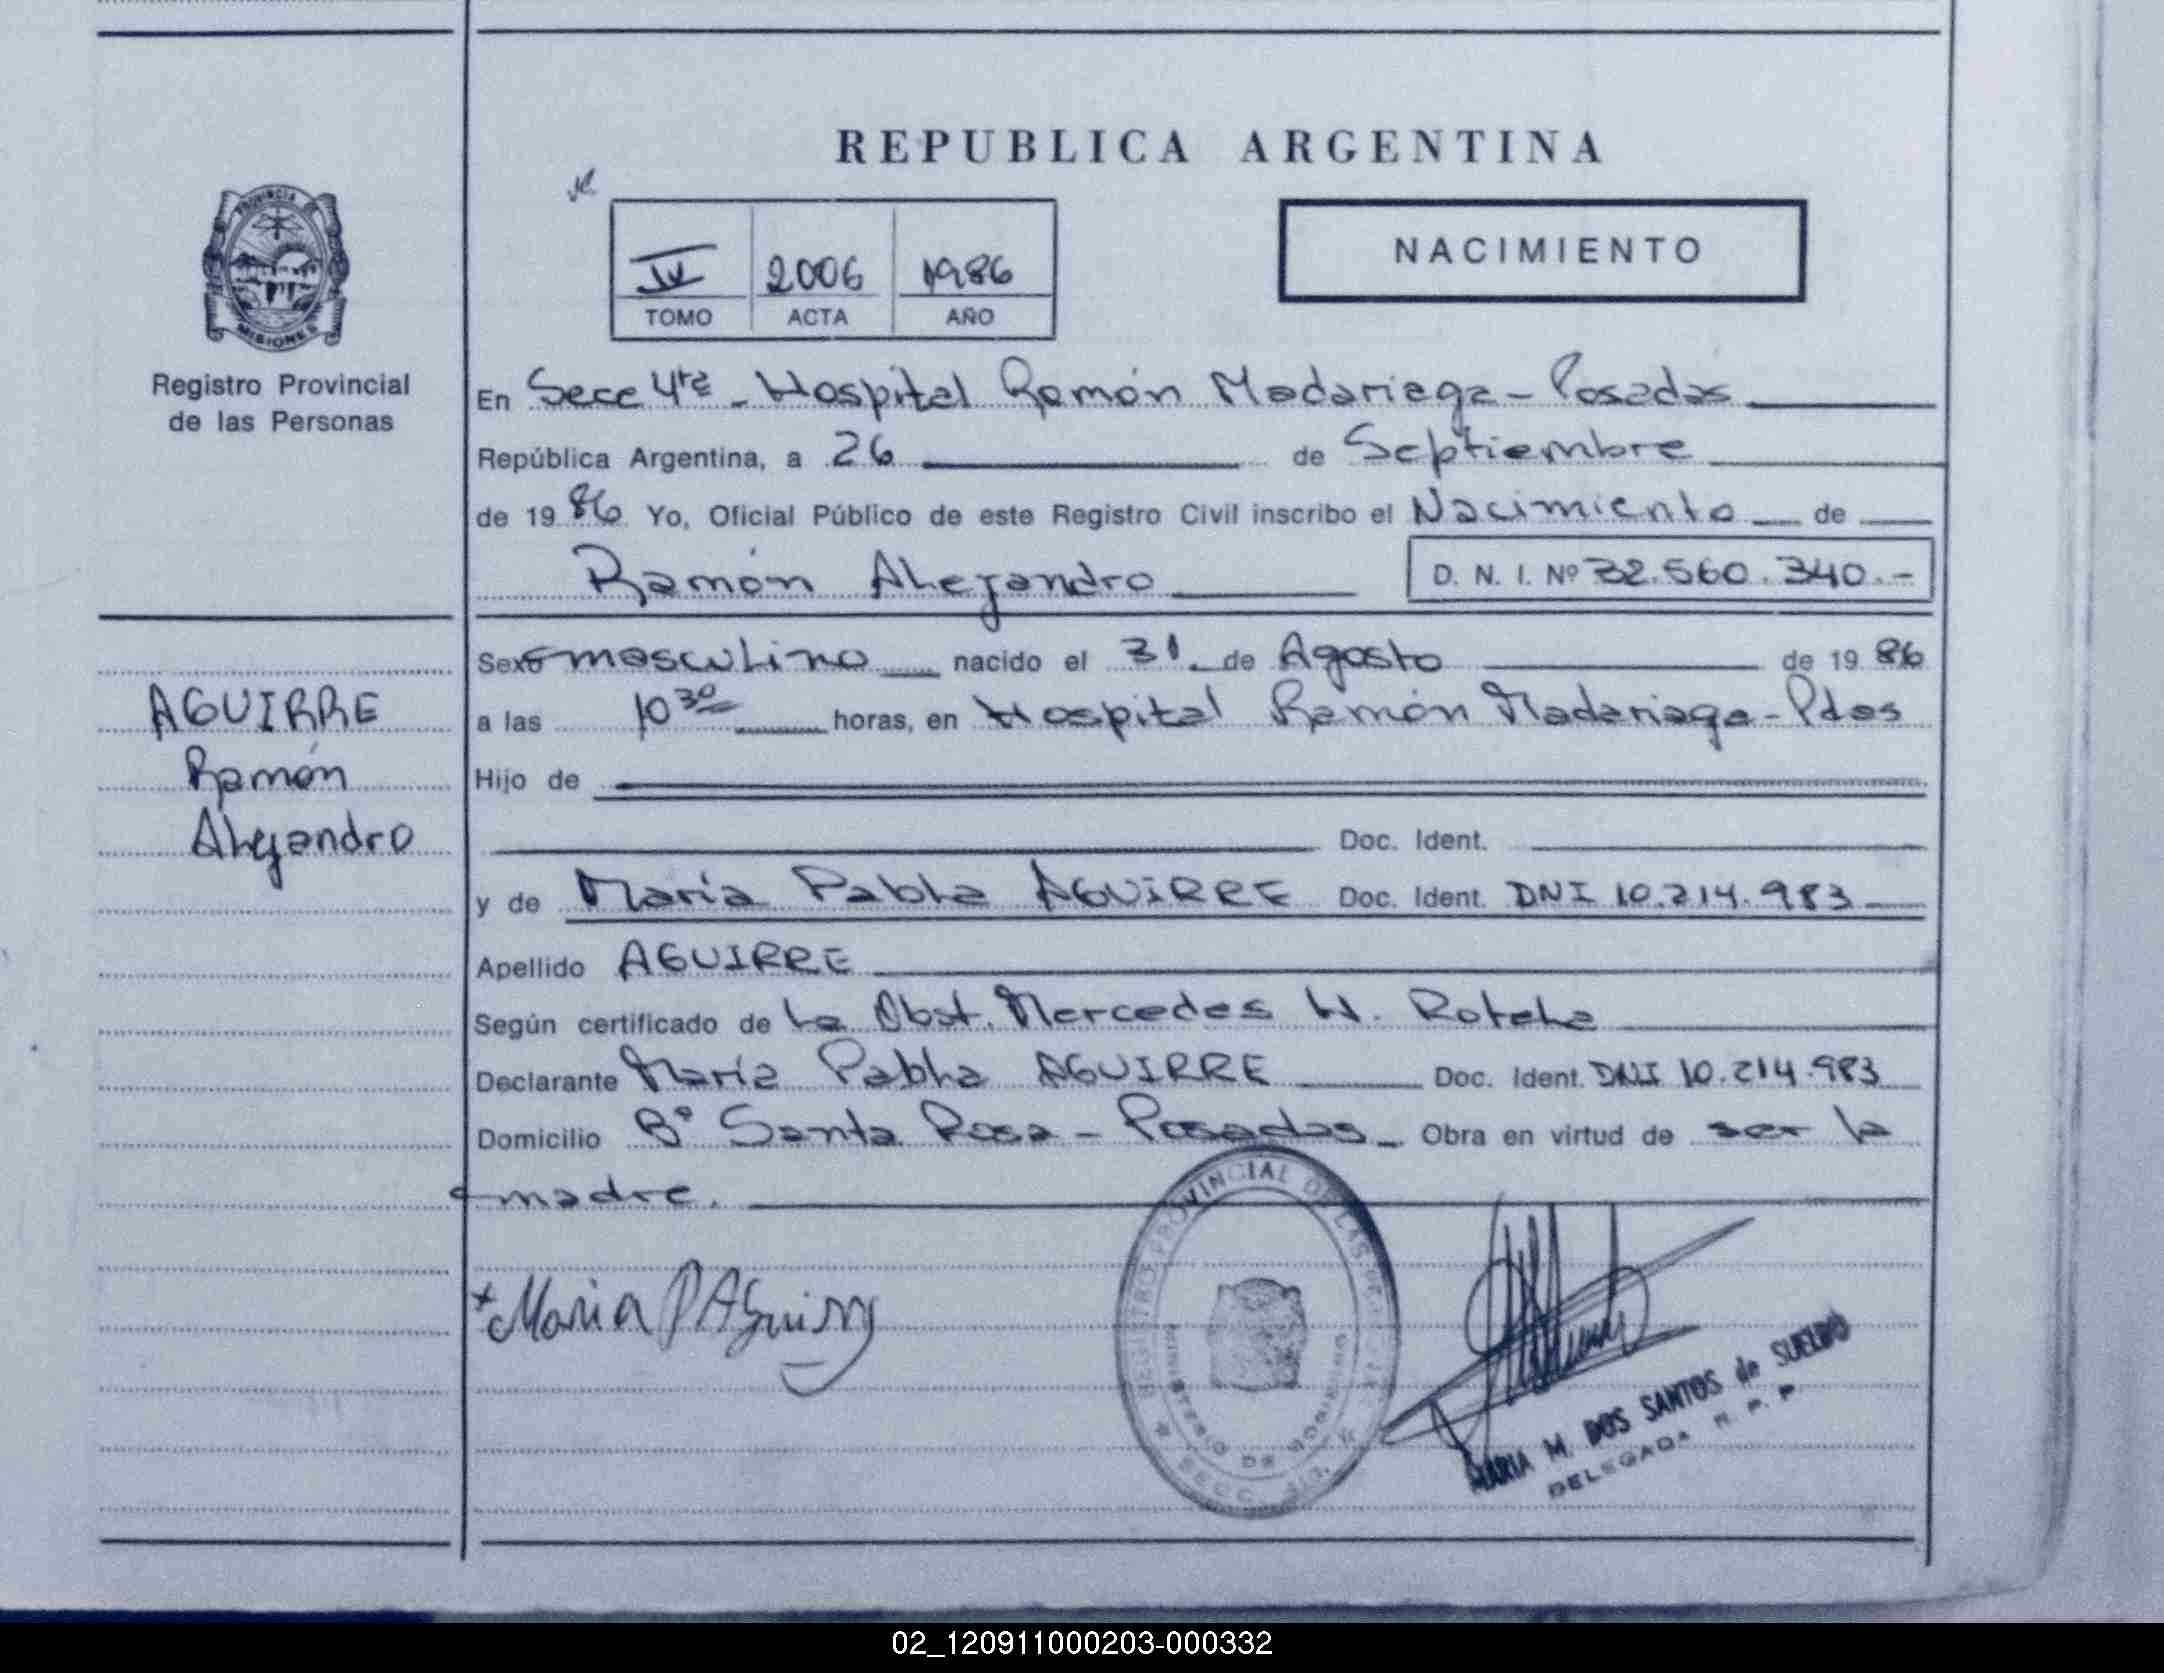 REPUBLICA ARGENTINA
PROVINCIA
MISIONES
Registro Provincial
de las Personas
IV 2006 1986
TOMO ACTA AÑO
NACIMIENTO
En Secc 4ta - Hospital Ramón Madariaga - Posadas
República Argentina, a 26 de Septiembre
de 1986 Yo, Oficial Público de este Registro Civil inscribo el Nacimiento de
Ramón Alejandro D. N. I. Nº 32.560.340.-
Sexo masculino nacido el 31 de Agosto de 1986
AGUIRRE
Ramón
Alejandro
a las 10 30 horas, en Hospital Ramón Madariaga - Pdas
Hijo de
Doc. Ident.
y de María Pabla AGUIRRE Doc. Ident. DNI 10.214.983
Apellido AGUIRRE
Según certificado de La Obst. Mercedes H. Rotela
Declarante María Pabla AGUIRRE Doc. Ident. DNI 10.214.983
Domicilio Bº Santa Rosa - Posadas - Obra en virtud de ser la
madre.
Maria P Aguirre
REGISTRO PROVINCIAL DE LAS
MINISTERIO DE GOBIERNO
MARIA M. DOS SANTOS de SUELDO
DELEGADA R. P. P
02_120911000203-000332